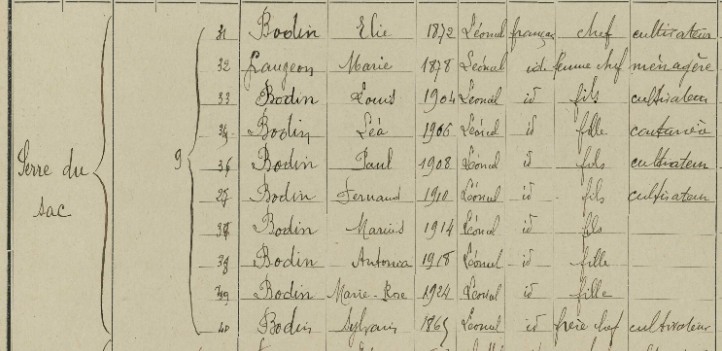 31 Bodin Elie 1872 Léoncel français chef cultivateur
32 Faugeon Marie 1878 Léoncel id femme chef ménagère
33 Bodin Louis 1904 Léoncel id fils cultivateur
34 Bodin Léa 1906 Léoncel id fille couturière
Serre du 9 35 Bodin Paul 1908 Léoncel id fils cultivateur
sac 36 Bodin Fernand 1910 Léoncel id fils cultivateur
37 Bodin Marius 1914 Léoncel id fils
38 Bodin 1918 Léoncel id fille
39 Bodin Marie-Rose 1924 Léoncel id fille
40 Bodin Sylvain 1865 Léoncel id frère chef cultivateur